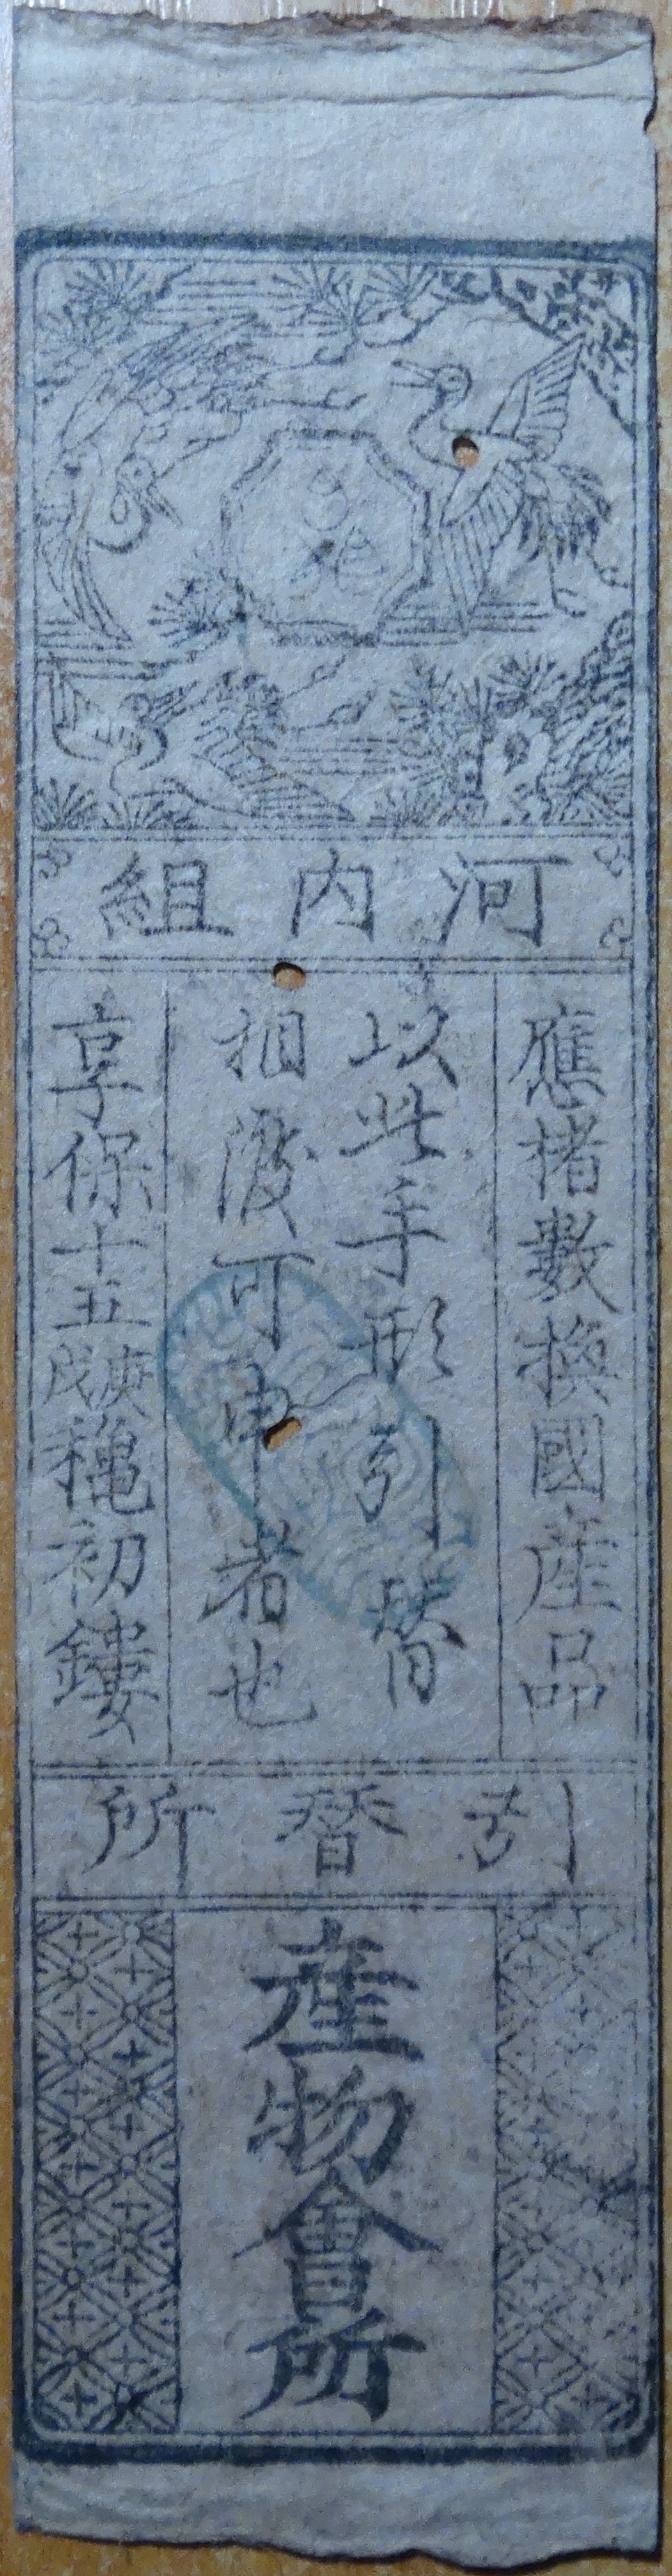 河内組
應楮數換國産品
以此手形引替
相渡可申者也
享保十五庚戌龝初鏤
引替所
産物會所